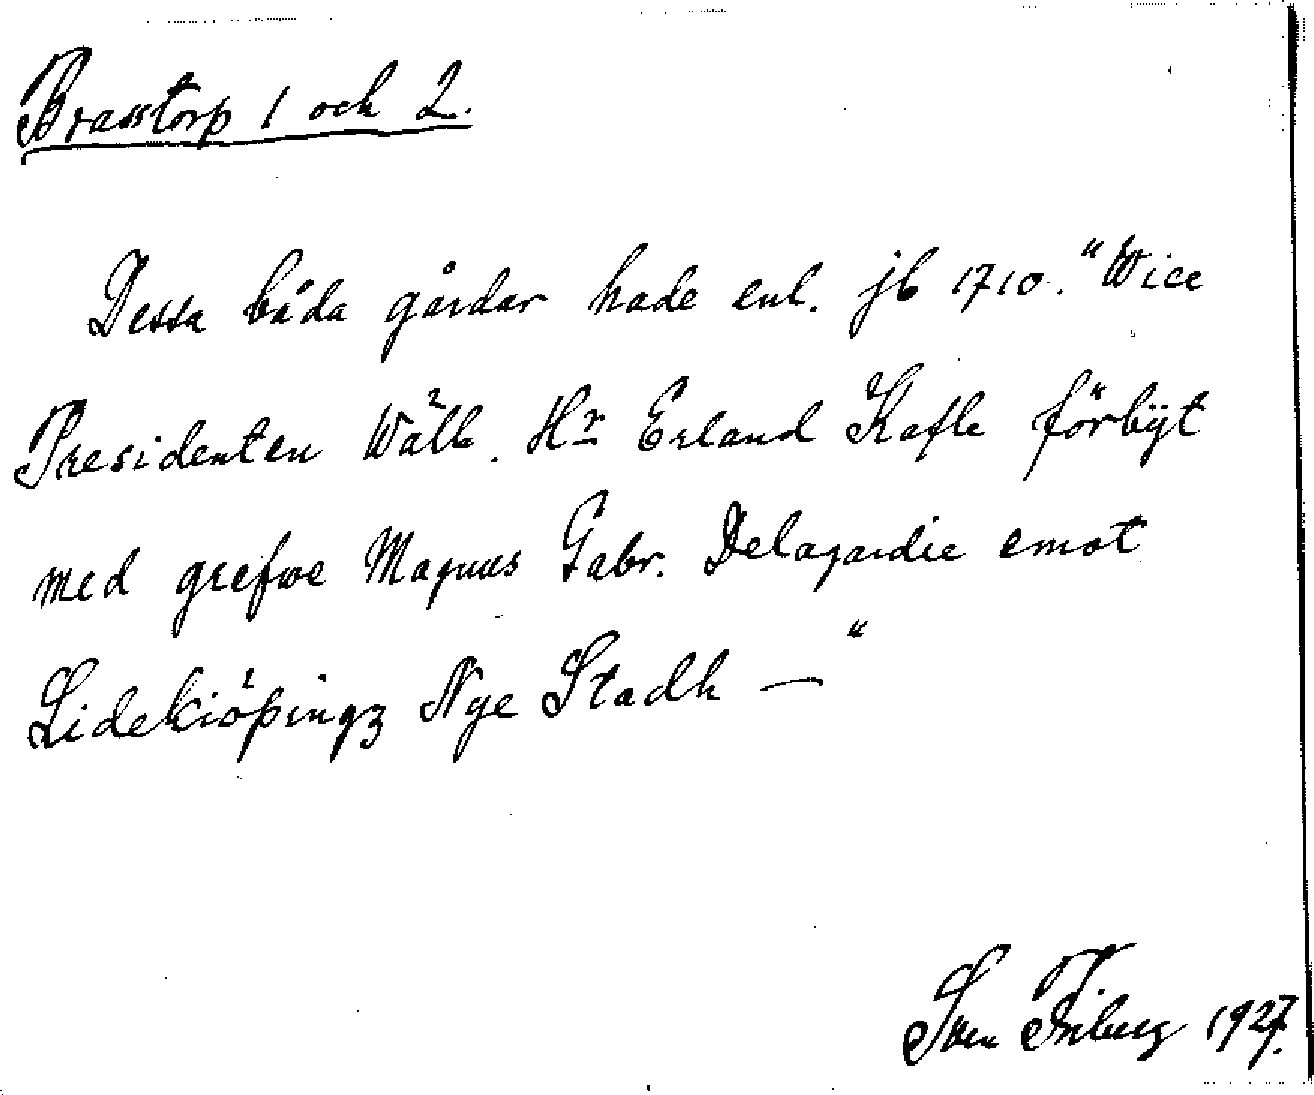 Brasstorp 1 och 2.
Dessa båda gårdar hade enl. jb 1710. "Wice
Presidenten Wälb. Hr Erland Kafle förbÿt
med grefwe Magnus Gabr. Delagardie emot
Lidekiöpingz Nye Stadh — "
Sven Friberg 1927.